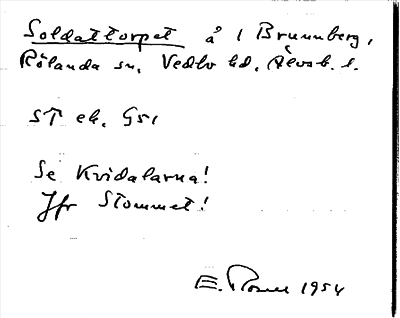 Soldattorpet å 1 Brunnberg,
Rölanda sn, Vedbo hd, Älvsb. l.
ST ek. G51
Se Kvidalarna!
Jfr Stommet!
E. Rosell 1954